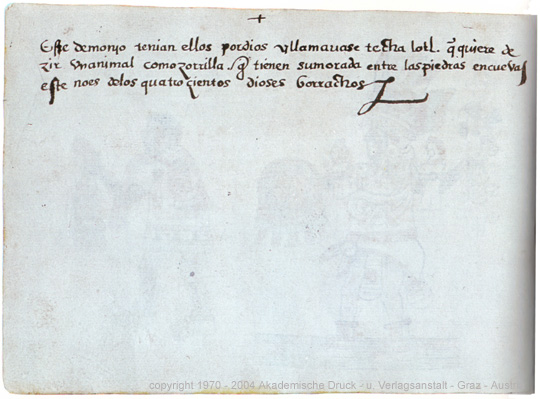 +
Este demonio tenian ellos pordios yllamavase techa lotl. q̃ quiere de
zir Vnanimal comozorrilla. q̃ tienen sumorada entre laspiedras encuevas
este noes delos quatrozientos dioses borrachos
copyright 1970 - 2004 Akademische Druck - u. Verlagsanstalt - Graz - Austri